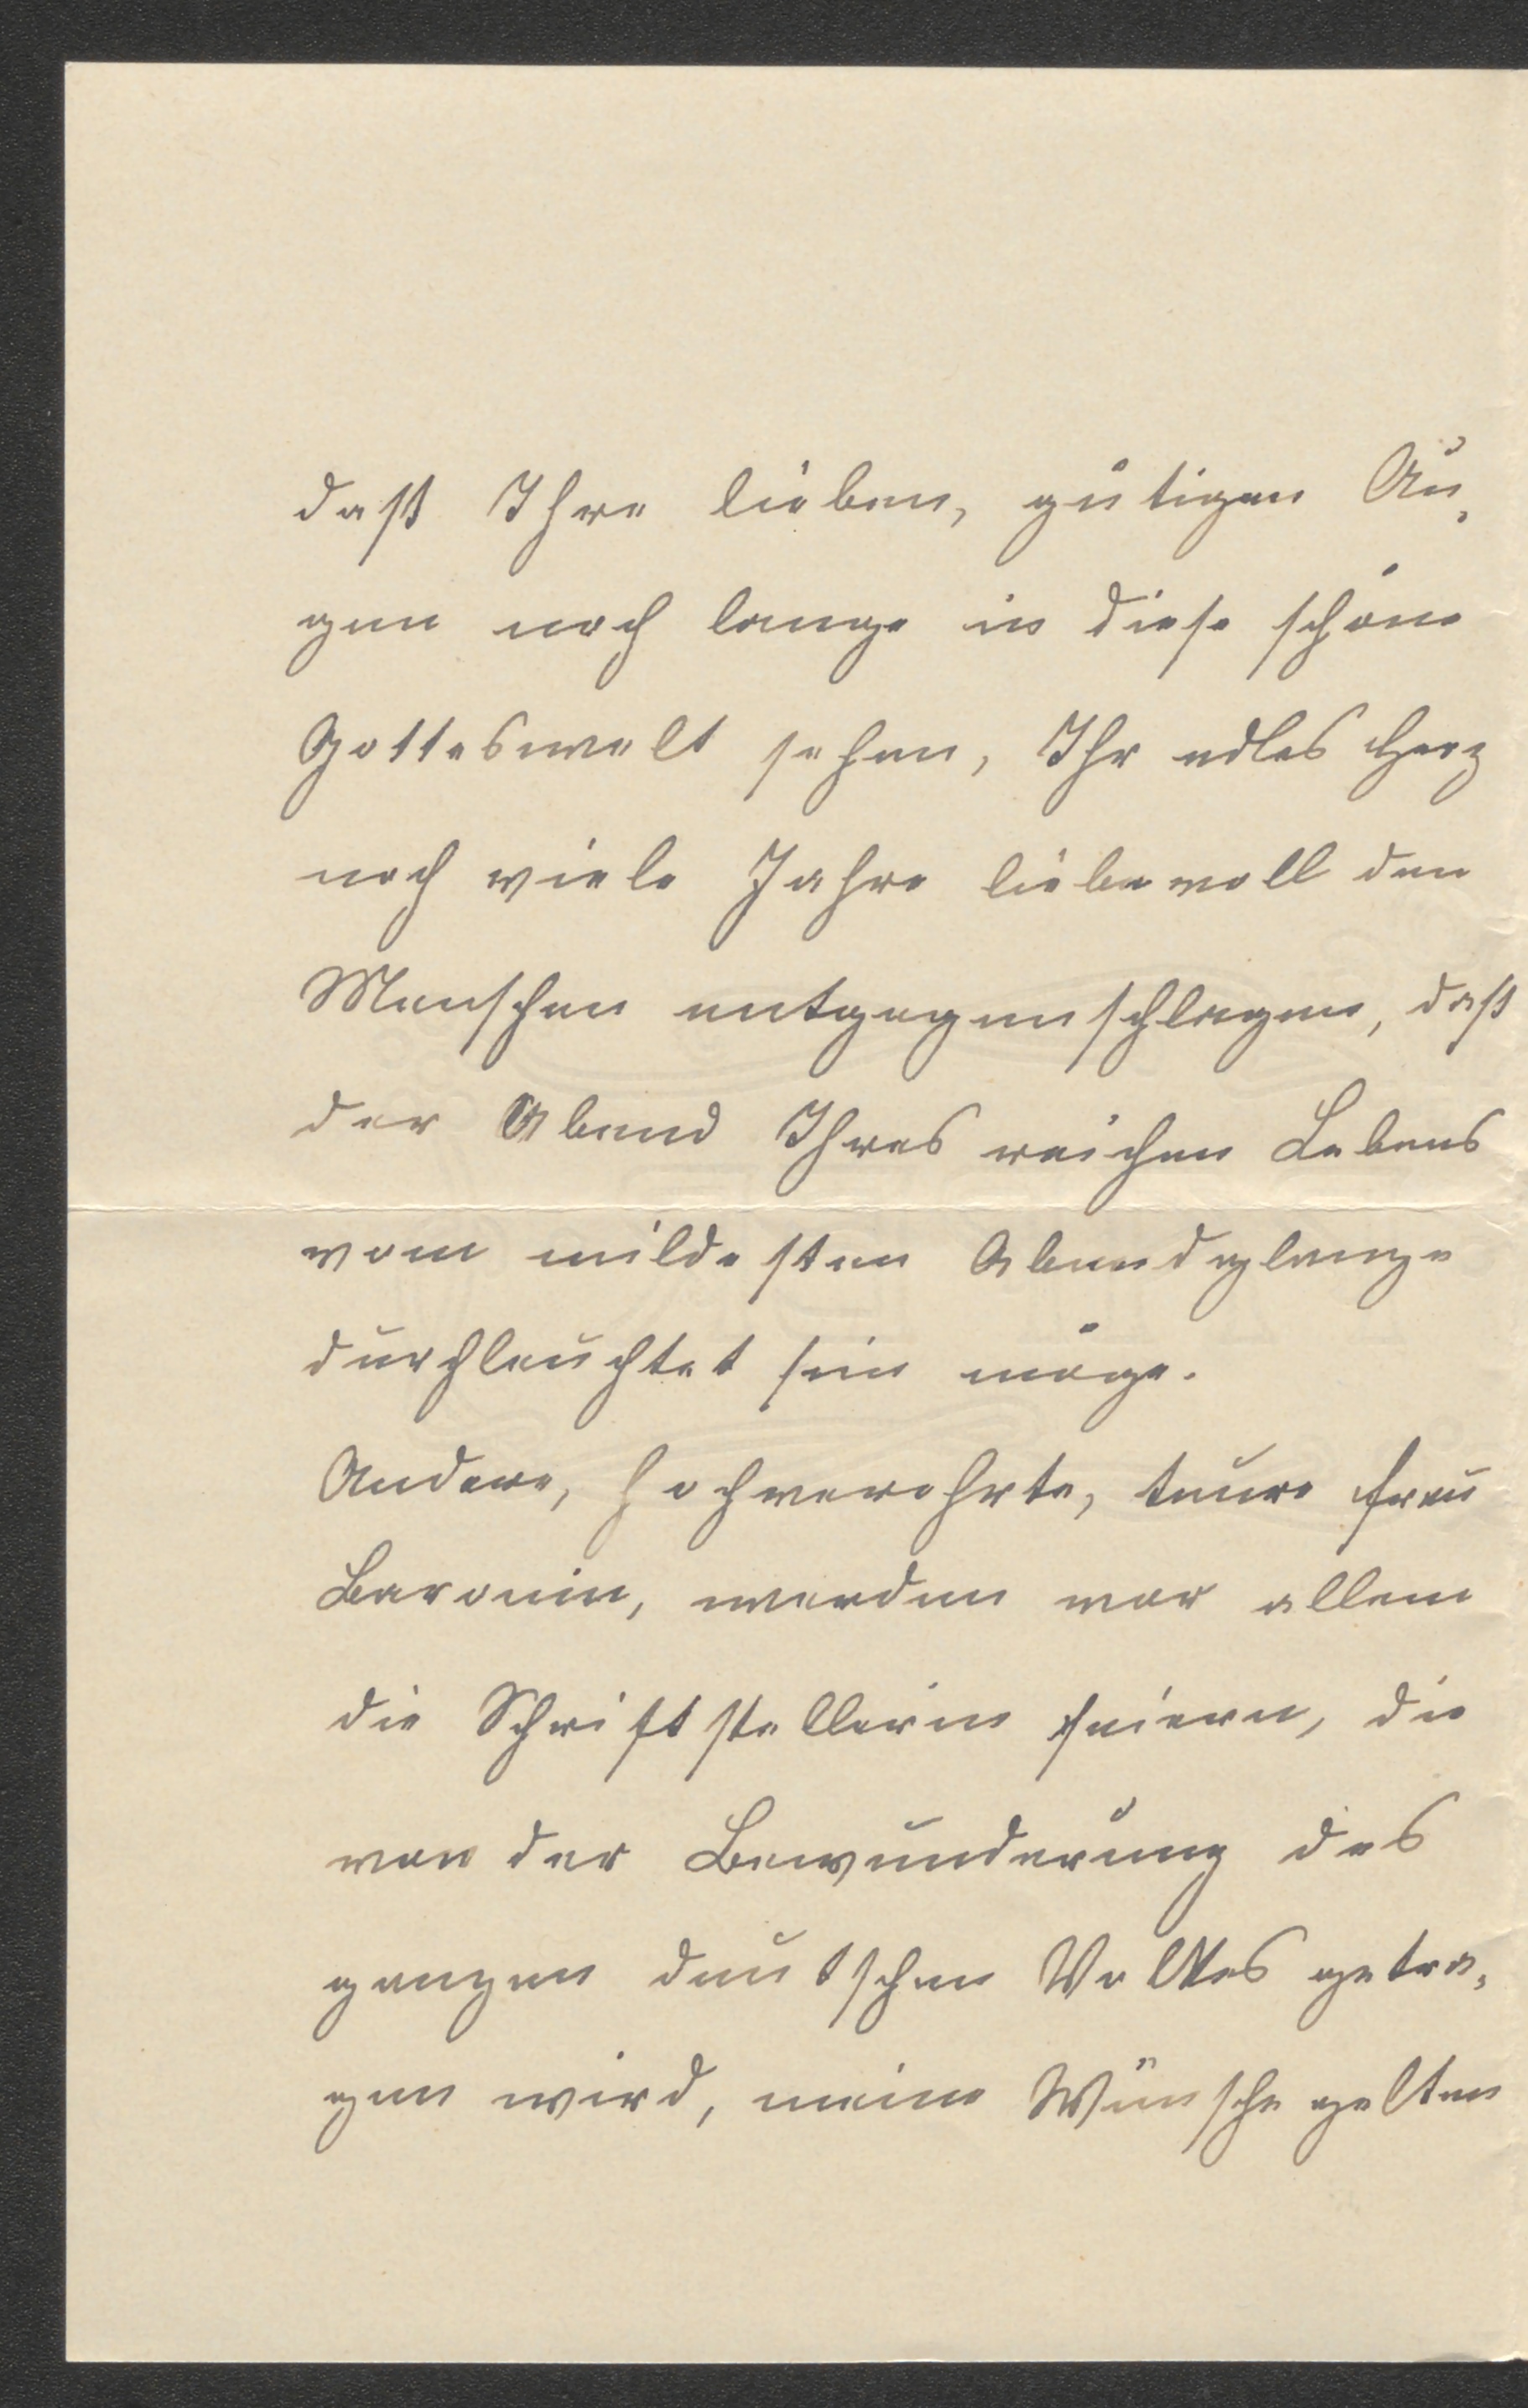 daß Ihre lieben, gütigen Au-
gen noch lange in diese schöne
Gotteswelt sehen, Ihr edles Herz
noch viele Jahre liebevoll den
Menschen entgegenschlagen, daß
der Abend Ihres reichen Lebens
vom mildesten Abendglanze
durchleuchtet sein möge.
Andere, hochverehrte, teure Frau
Baronin, werden vor allem
die Schriftstellerin feiern, die
von der Bewunderung des
ganzen deutschen Volkes getra-
gen wird, meine Wünsche gelten